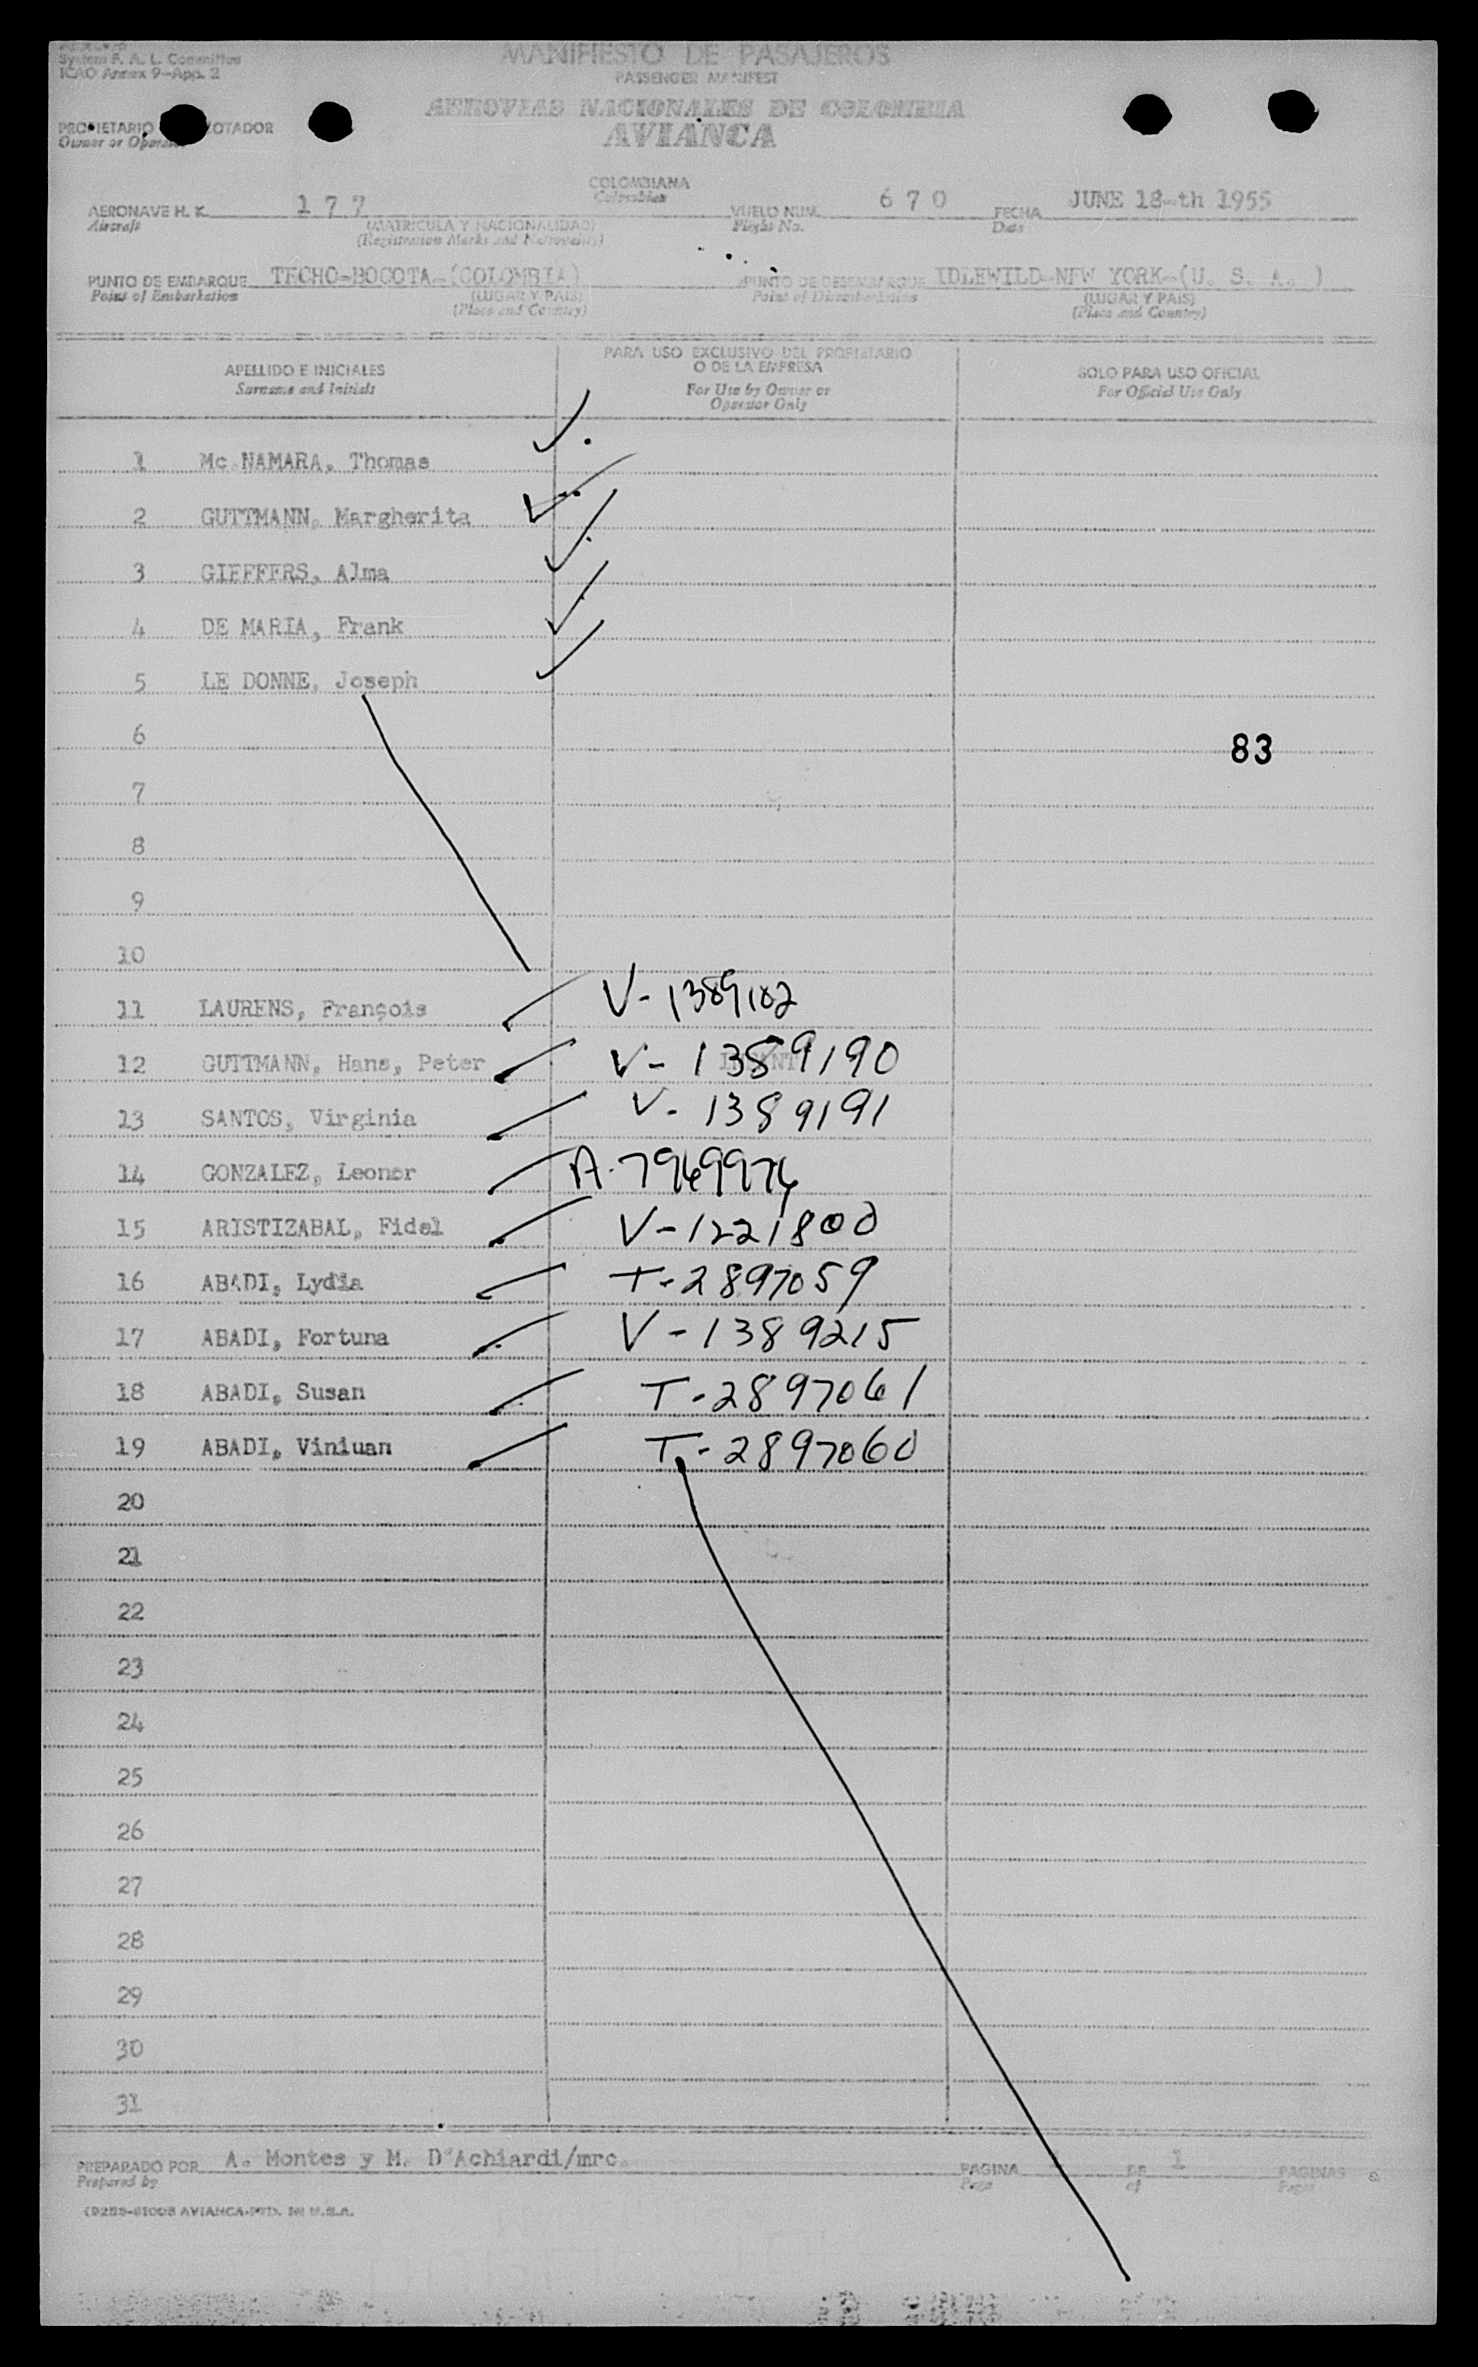 System F. A. L. Committee
ICAO Annex 9-App. 2
MANIFIESTO DE PASAJEROS
PASSENGER MANIFEST
AEROVIAS NACIONALES DE COLOMBIA
AVIANCA
PROPIETARIO
Owner or Operator
COLOMBIANA
Colombian
AERONAVE H. K. 177 VUELO NUM. 670 FECHA JUNE 18-th 1955
Aircraft (MATRICULA Y NACIONALIDAD) Flight No. Date
(Registration Marks and Nationality)
PUNTO DE EMBARQUE TECHO-BOGOTA-(COLOMBIA) PUNTO DE DESEMBARQUE IDLEWILD-NEW YORK-(U. S. A. )
Point of Embarkation (LUGAR Y PAIS) Point of Disembarkation (LUGAR Y PAIS)
(Place and Country) (Place and Country)
APELLIDO E INICIALES
Surname and Initials
PARA USO EXCLUSIVO DEL PROPIETARIO
O DE LA EMPRESA
For Use by Owner or
Operator Only
SOLO PARA USO OFICIAL
For Official Use Only
1 Mc NAMARA, Thomas
2 GUTTMANN, Margherita
3 GIEFFERS, Alma
4 DE MARIA, Frank
5 LE DONNE, Joseph
6 83
7
8
9
10
11 LAURENS, François V-1389182
12 GUTTMANN, Hans, Peter INFANT V-1389190
13 SANTOS, Virginia V-1389191
14 GONZALEZ, Leonor A-7969976
15 ARISTIZABAL, Fidel V-1221800
16 ABADI, Lydia T-2897059
17 ABADI, Fortuna V-1389215
18 ABADI, Susan T-2897061
19 ABADI, Viniuan T-2897060
20
21
22
23
24
25
26
27
28
29
30
31
PREPARADO POR A. Montes y M. D'Achiardi/mrc. PAGINA 1 DE 1 PAGINAS
Prepared by Page of Pages